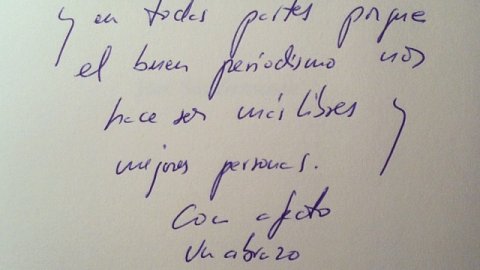 y en todas partes porque
el buen periodismo nos
hace ser más libres y
mejores personas.
Con afecto
Un abrazo